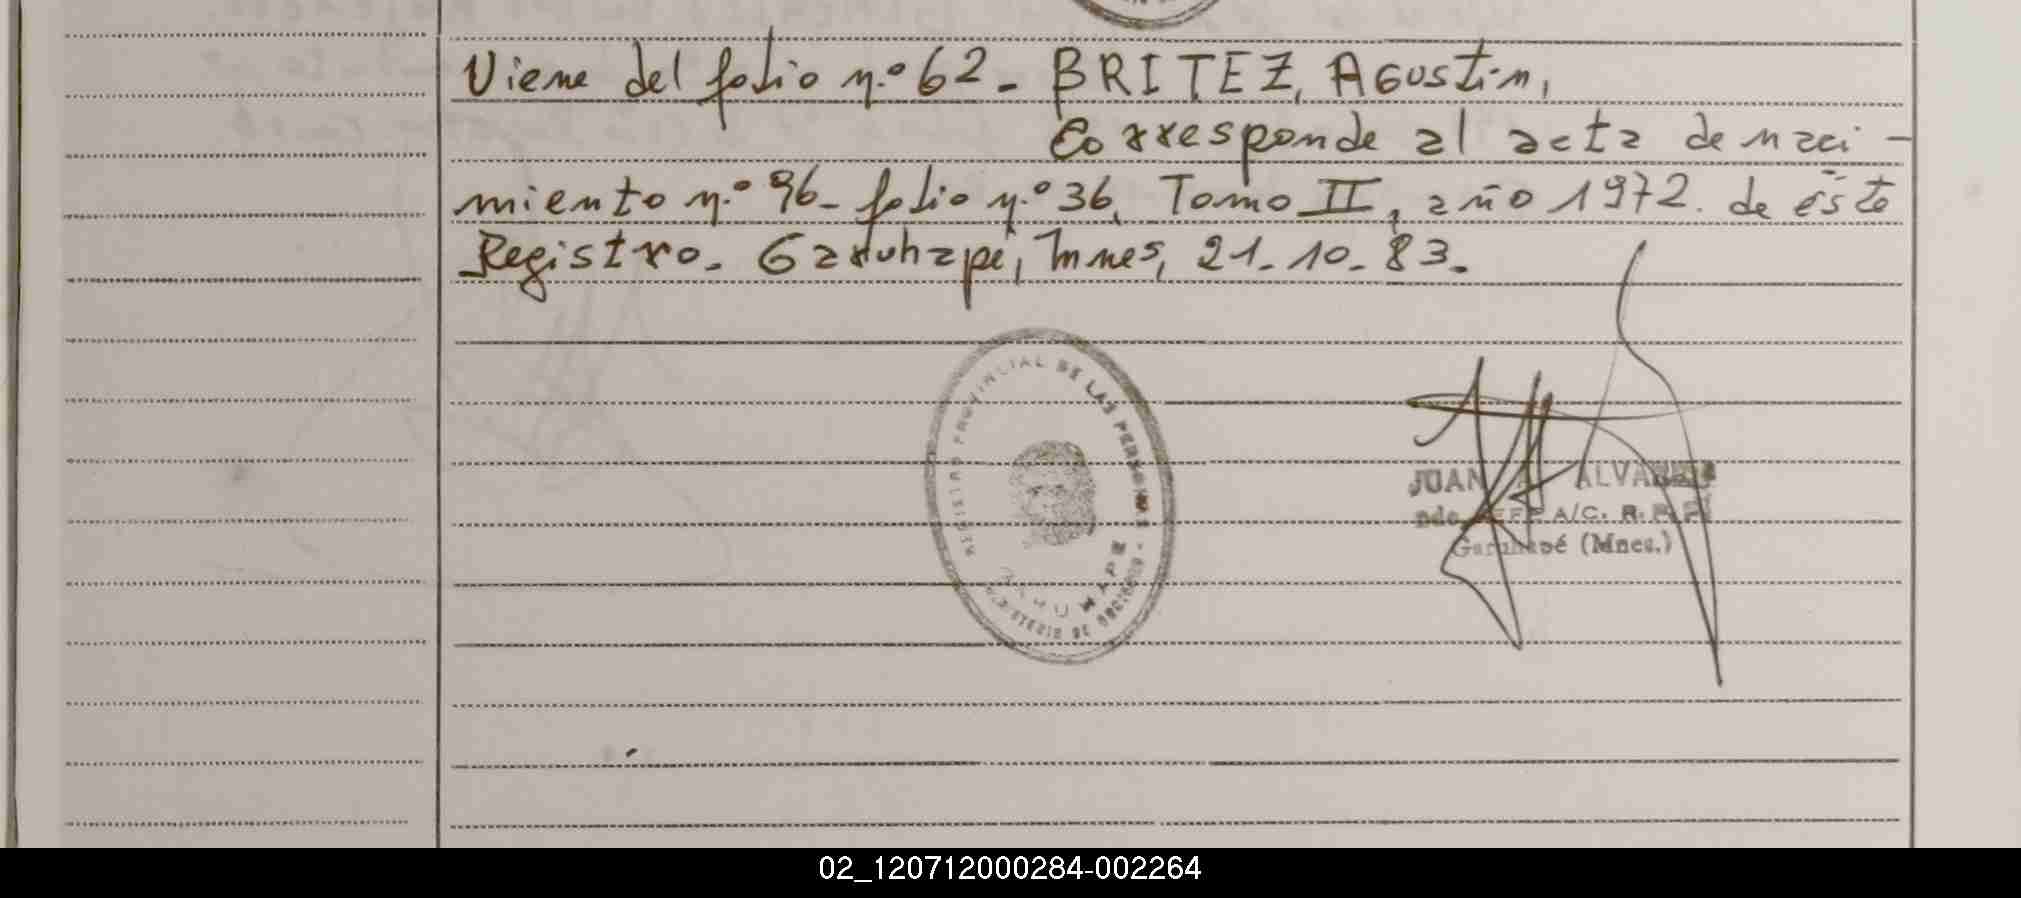 Viene del folio n.º 62 - BRITEZ, Agustin,
Corresponde al acta de naci-
miento n.º 96 - folio n.º 36, Tomo II, año 1972. de éste
Registro. Garuhapé, Mnes, 21-10-83.
REGISTRO PROVINCIAL DE LAS PERSONAS
MINISTERIO DE GOBIERNO
GARUHAPE
JUAN ALVAREZ
JEFE A/C. R.P.P.
Garuhapé (Mnes.)
02_120712000284-002264